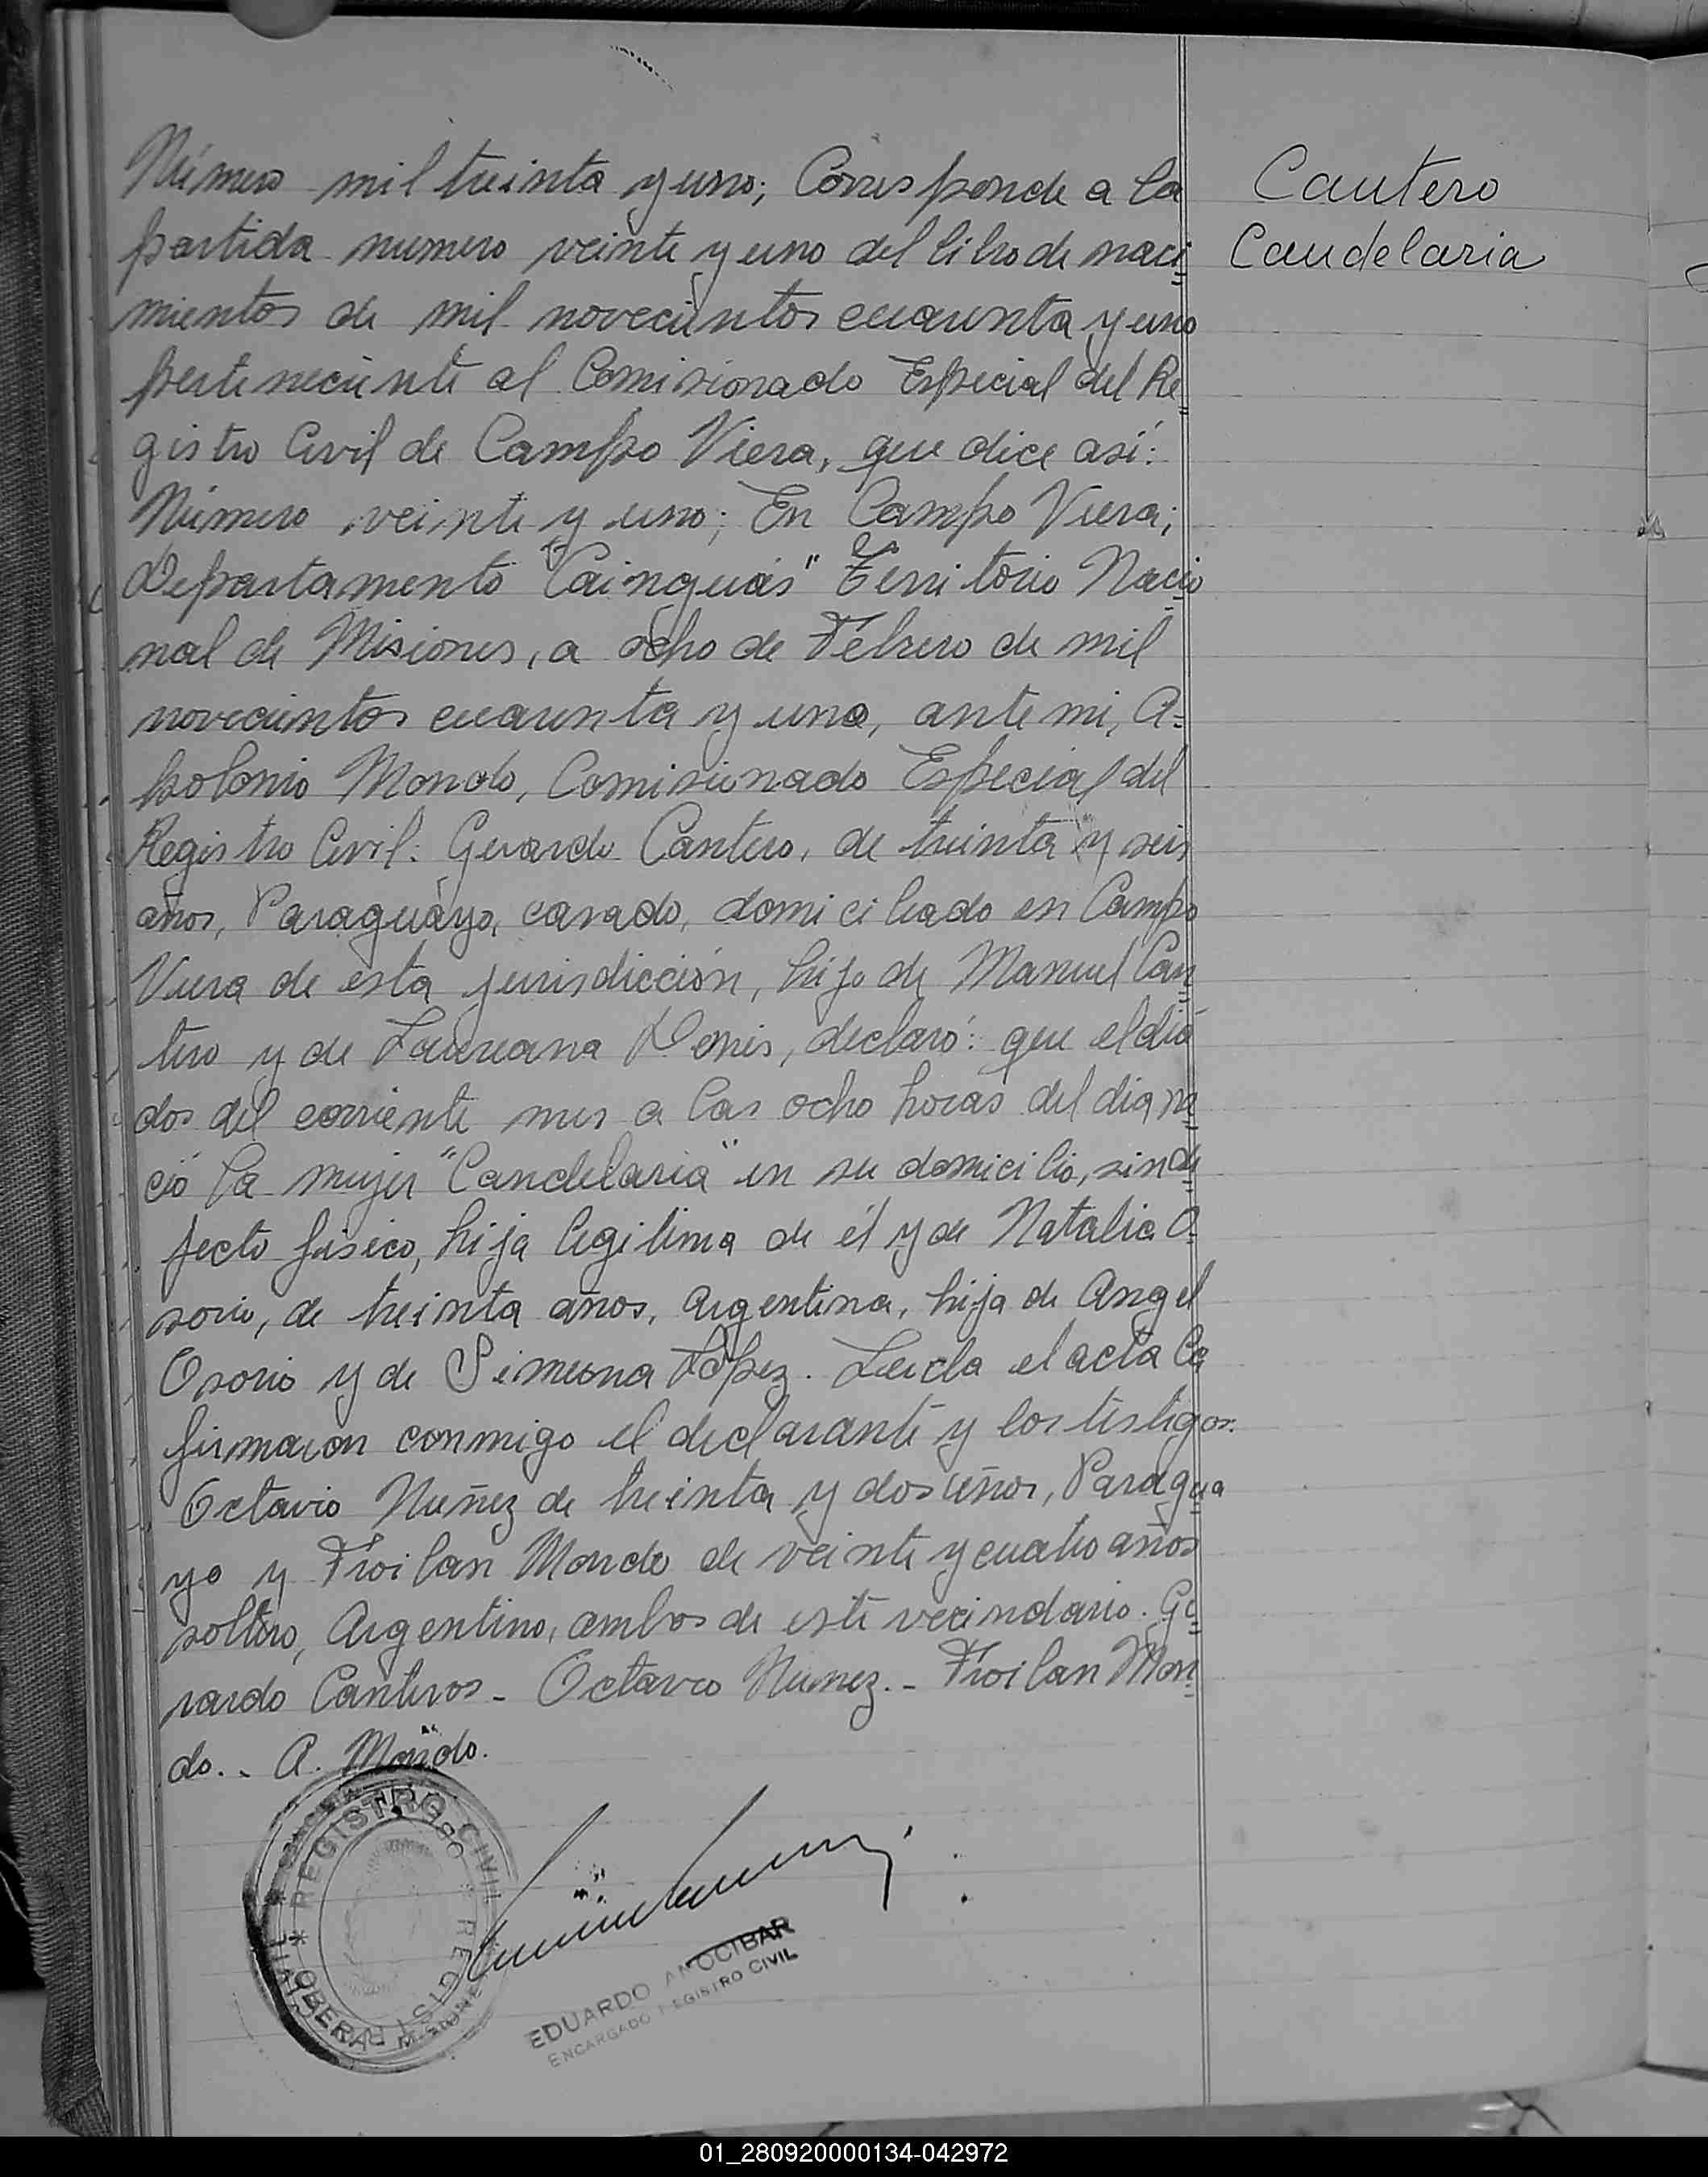 Número mil treinta y uno; Corresponde a la
partida numero veinte y uno del libro de naci
mientos de mil novecientos cuarenta y uno
perteneciente al Comisionado Especial del Re
gistro Civil de Campo Viera, que dice así:
Número veinte y uno; En Campo Viera;
Departamento "Cainguás" Territorio Nacio
nal de Misiones, a ocho de Febrero de mil
novecientos cuarenta y uno, ante mi, A=
polonio Mondo, Comisionado Especial del
Registro Civil: Gerardo Cantero, de treinta y seis
años, Paraguayo, casado, domiciliado en Campo
Viera de esta jurisdicción, hijo de Manuel Can
tero y de Laureana Denis, declaró: que el dia
dos del corriente mes a las ocho horas del dia na
ció la mujer "Candelaria" en su domicilio, sin de
fecto fisico, hija legitima de él y de Natalia O
sorio, de treinta años, Argentina, hija de Angel
Osorio y de Simeona López. Leida el acta la
firmaron conmigo el declarante y los testigos:
Octavio Nuñez de treinta y dos años, Paragua
yo y Froilan Mondo de veinte y cuatro años
soltero, Argentino, ambos de este vecindario. Ge
rardo Canteros - Octavio Nuñez. - Froilan Mon
do. - A. Mondo.
Cantero
Candelaria
REGISTRO CIVIL
OBERA MISIONES
EDUARDO ANOCIBAR
ENCARGADO REGISTRO CIVIL
01_280920000134-042972